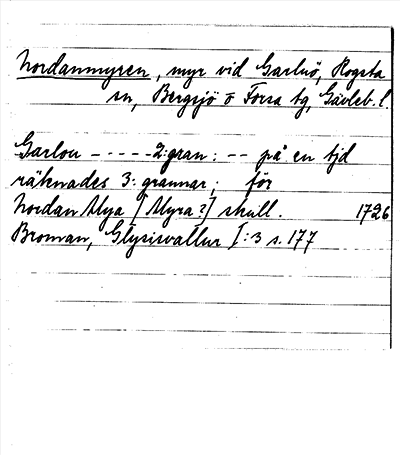 Nordanmyren, myr vid Garlsö, Rogsta
sn, Bergsjö o Forsa tg, Gävleb. l.
Garlou - - - - - 2: gran: - - på en tjd
räknades 3: grannar; för
Nordan Mya [Myra?] skull. 1726
Broman, Glysisvallur I: 3 s. 177